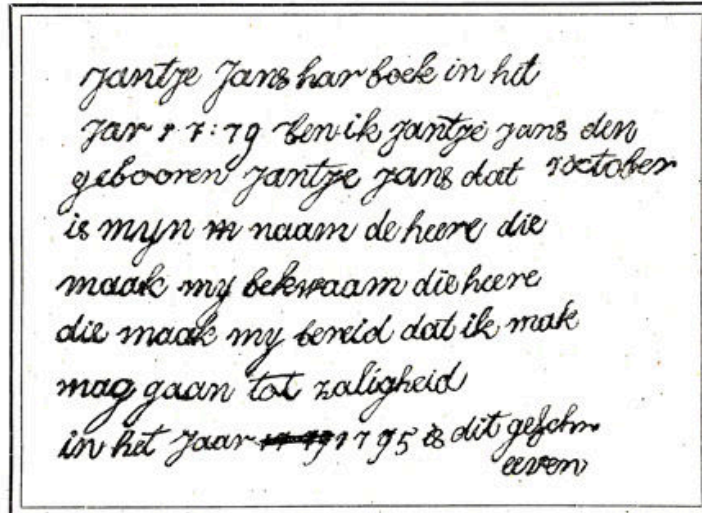 Jantje Jans har boek in hit
Jar 17:79 ben ik Jantje Jans den
gebooren Jantje Jans dat 1 october
is myn m naam de heere die
maak my bekwaam die heere
die maak my bereid dat ik mak
mag gaan tot zaligheid
in het Jaar 1795 is dit geschr
eeven